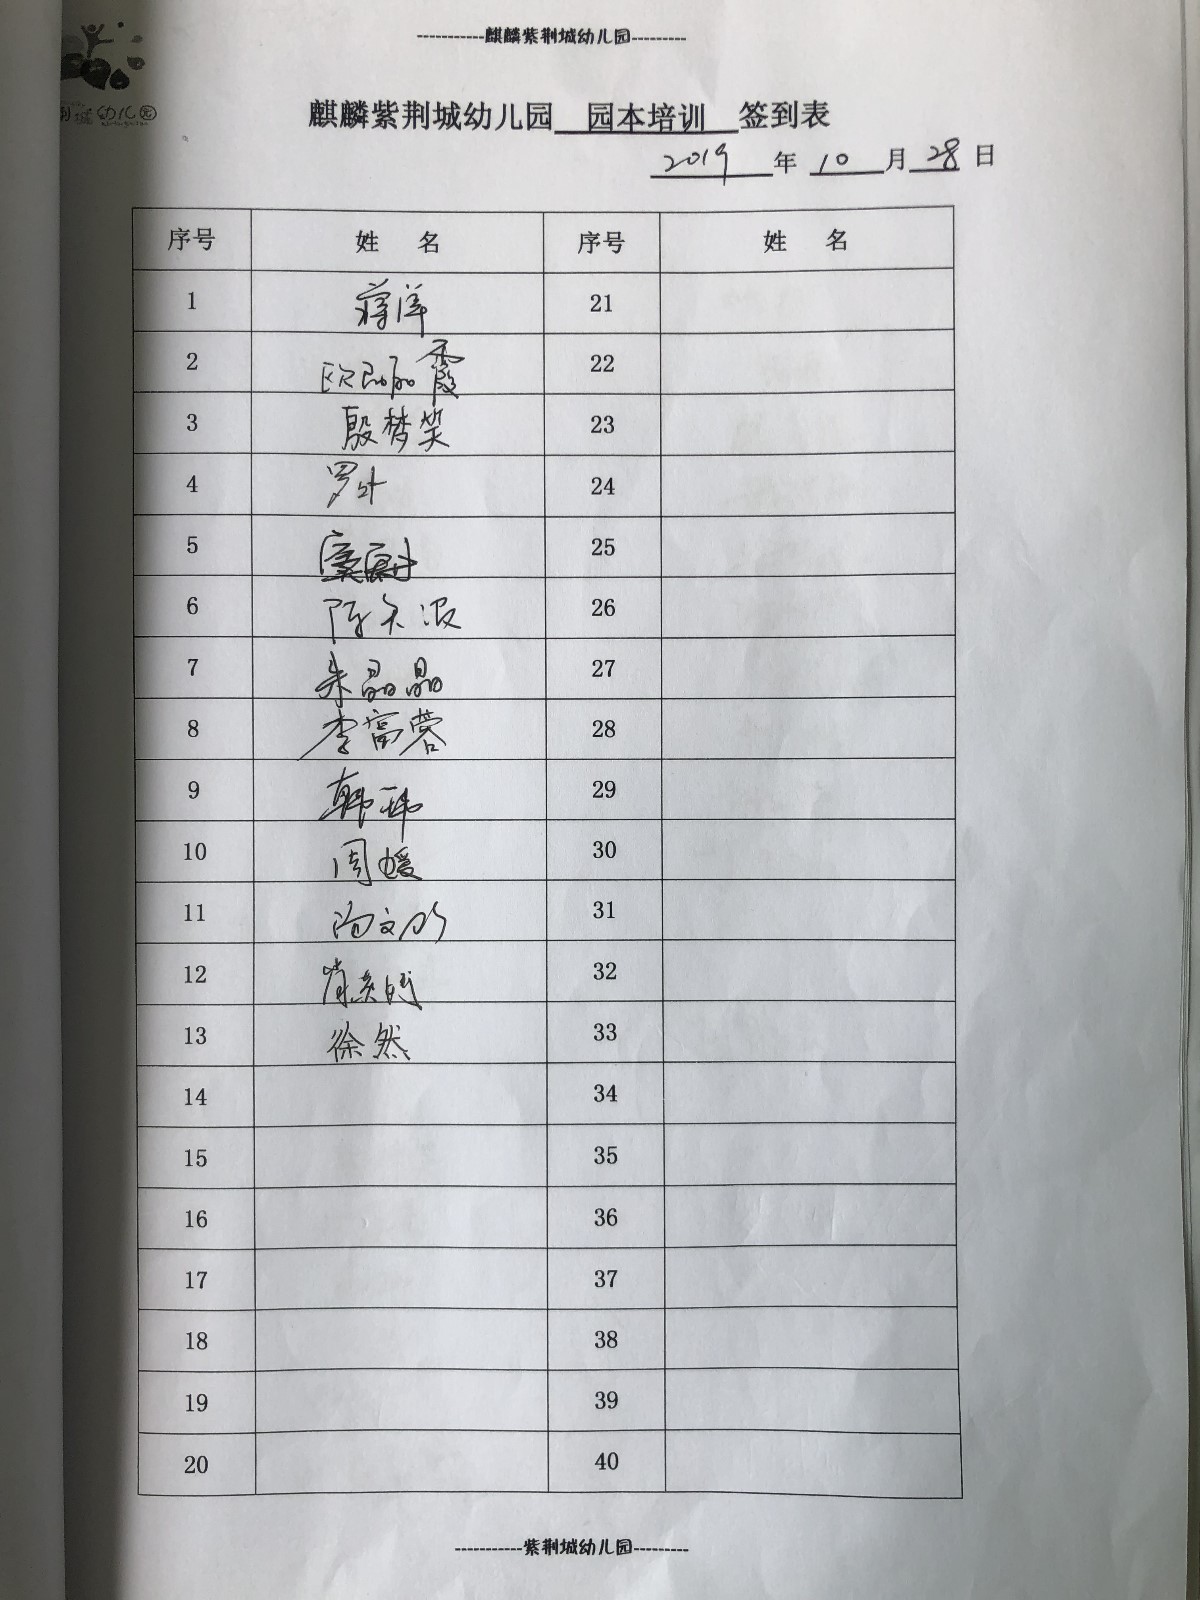 -----------麒麟紫荆城幼儿园---------
荆城幼儿园
麒麟紫荆城幼儿园 园本培训 签到表
2019 年 10 月 28 日
序号 姓 名 序号 姓 名
1 蒋洋 21
2 霞 22
3 殷梦笑 23
4 罗叶 24
5 25
6 陈 26
7 朱晶晶 27
8 李富蓉 28
9 韩玮 29
10 周媛 30
11 陶文 31
12 肖 32
13 徐然 33
14 34
15 35
16 36
17 37
18 38
19 39
20 40
-----------紫荆城幼儿园---------